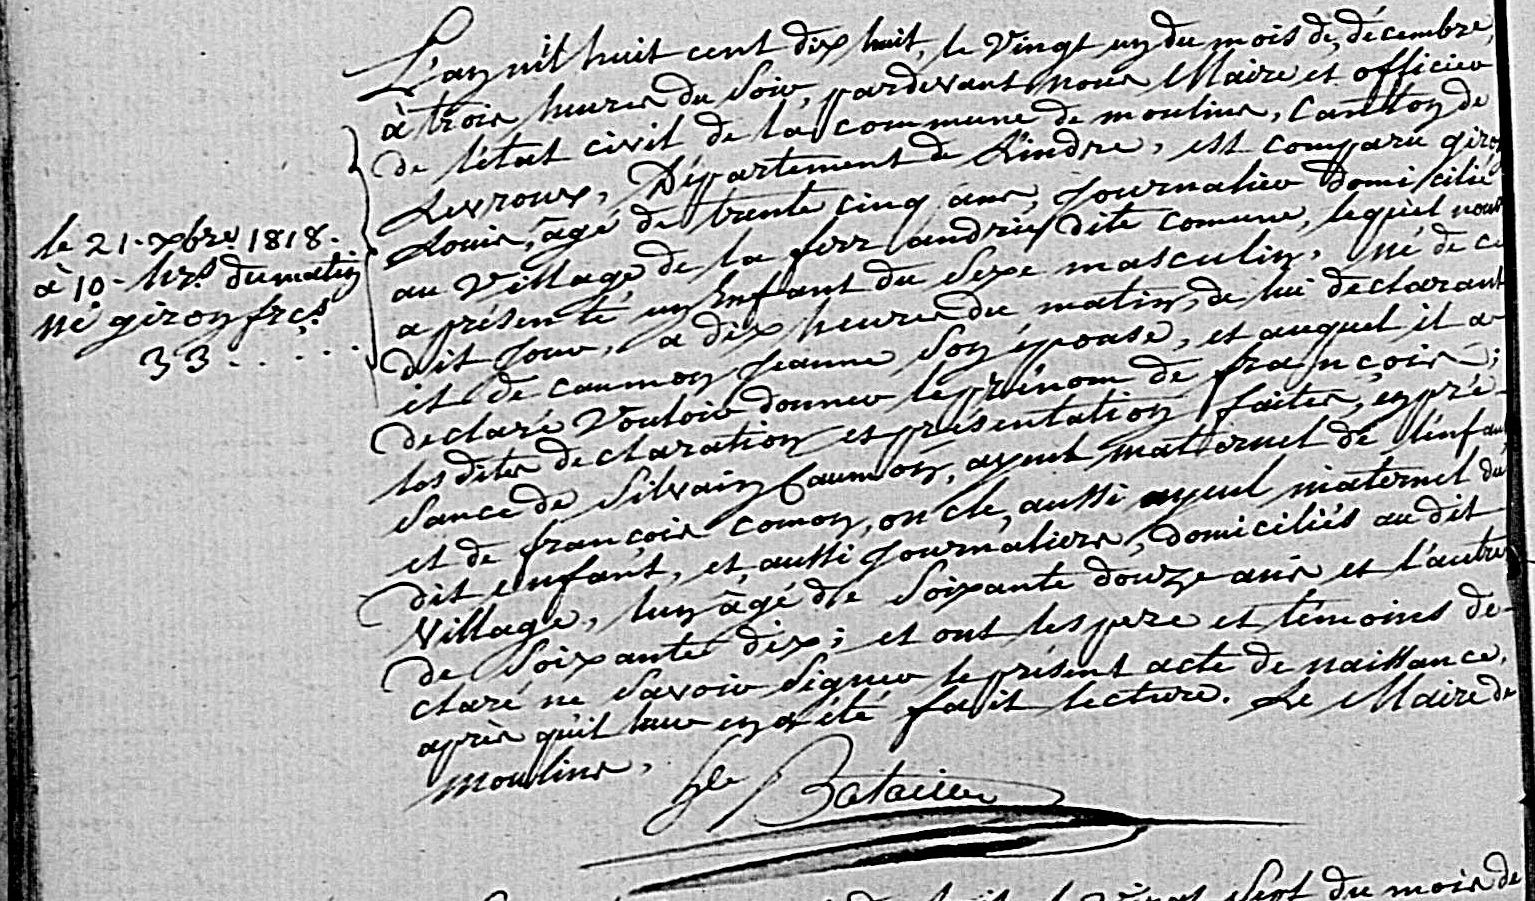 le 21. xbre 1818.
à 10 hrs. du matin
né giron frcs.
33.....
L'an mil huit cent dix huit, le vingt un du mois de décembre,
à trois heures du soir, pardevant nous Maire et officier
de l'état civil de la commune de moulins, Canton de
Levroux, Département de L'indre, est comparu giron
Louis, âgé de trente cinq ans, journalier domicilié
au village de la ferr andrie, dite comune, lequel nous
a présenté un Enfant du Sexe masculin, né de ce
dit jour, a dix heures du matin, de lui déclarant
et de caumon jeanne Son épouse, et auquel il a
déclaré vouloir donner le prénom de françois;
les dites déclaration et présentation faites, en pré-
sance de Silvain Caumon, ayeul maternel de l'enfant
et de françois comon, oncle, aussi ayeul maternel du
dit enfant, et aussi journaliers, domiciliés au dit
village, lun âgé de soixante douze ans et l'autre
de soixante dix; et ont les pere et témoins dé-
claré ne savoir signer le présent acte de naissance,
après qu'il leur en a été fait lecture. Le Maire de
moulins,
Bataille
vingt sept du mois de